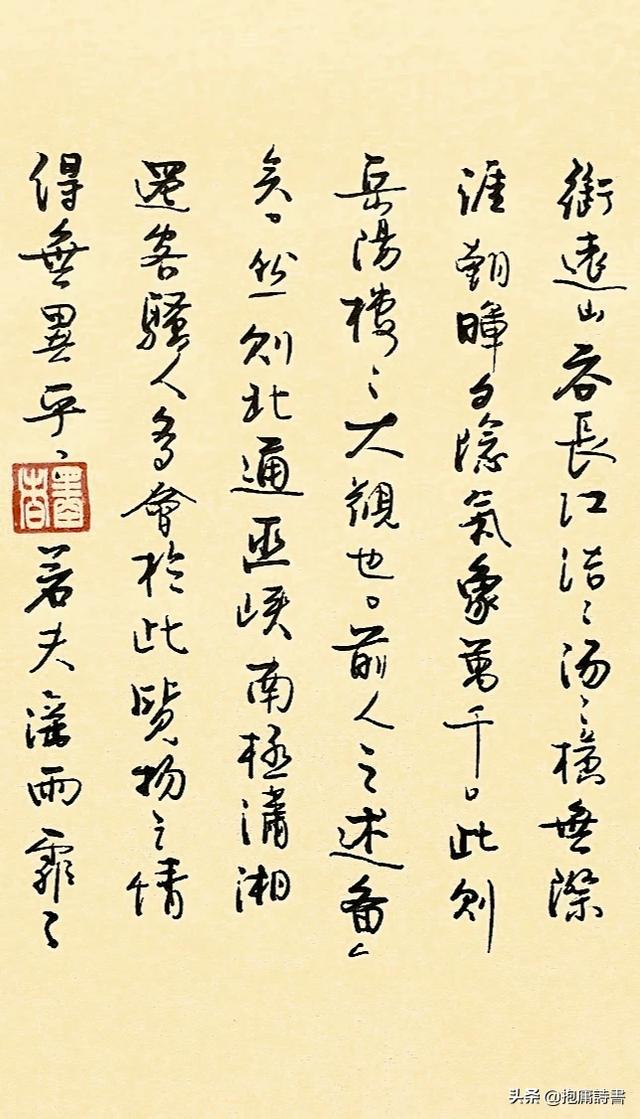 銜遠山吞長江浩〻湯〻橫無際
涯朝暉夕陰氣象萬千。此則
岳陽樓之大觀也。前人之述备
矣。然則北通巫峽南極瀟湘
遷客騷人多會於此覽物之情
得無異乎、若夫淫雨霏〻
头条 @抱庸詩書